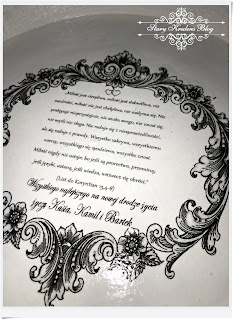 Stary Kredens Blog
Miłość jest cierpliwa, miłość jest dobrotliwa, nie
zazdrości, miłość nie jest chełpliwa, nie nadyma się. Nie
postępuje nieprzystojnie, nie szuka swego, nie unosi się,
nie myśli nic złego. Nie raduje się z niesprawiedliwości,
ale się raduje z prawdy. Wszystko zakrywa, wszystkiemu
wierzy, wszystkiego się spodziewa, wszystko znosi.
Miłość nigdy nie ustaje; bo jeśli są proroctwa, przeminą;
jeśli języki, ustaną; jeśli wiedza, wniwecz się obróci."
(List do Koryntian 13,4-8)
Wszystkiego najlepszego na nowej drodze życia
życzą Kasia, Kamil i Bartek